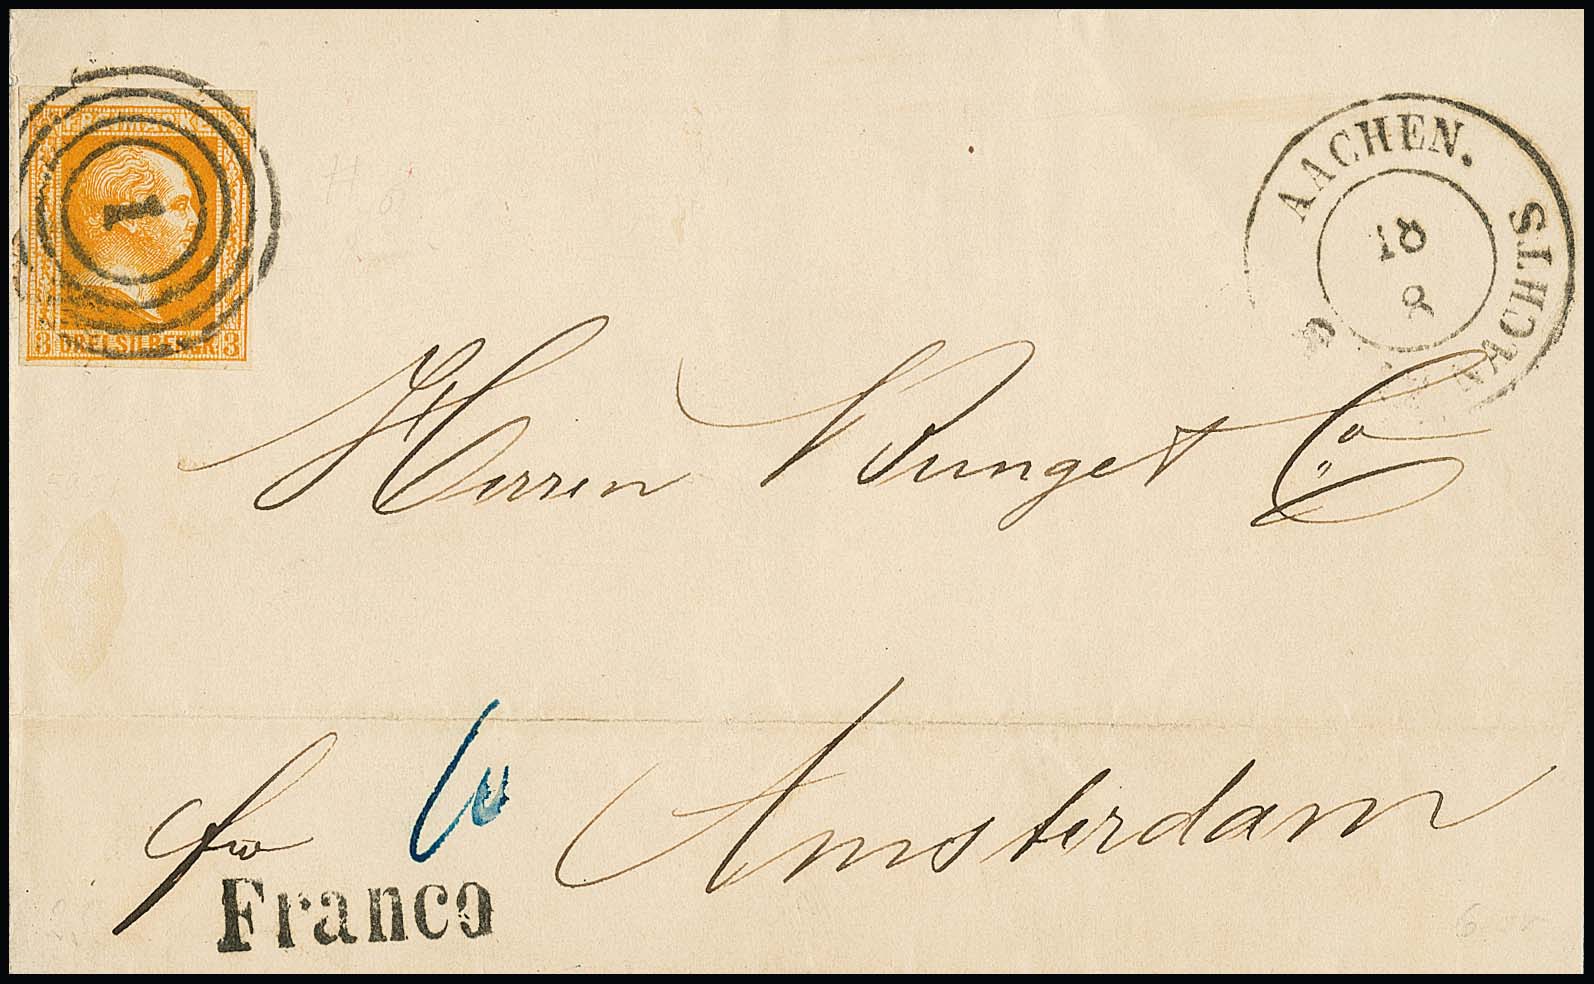 FREIMARKE
1
3 DREI SILBERGR 3
AACHEN.
18
8
NACHTS
Herren Bunge & Co
frco
6
Amsterdam
Franco